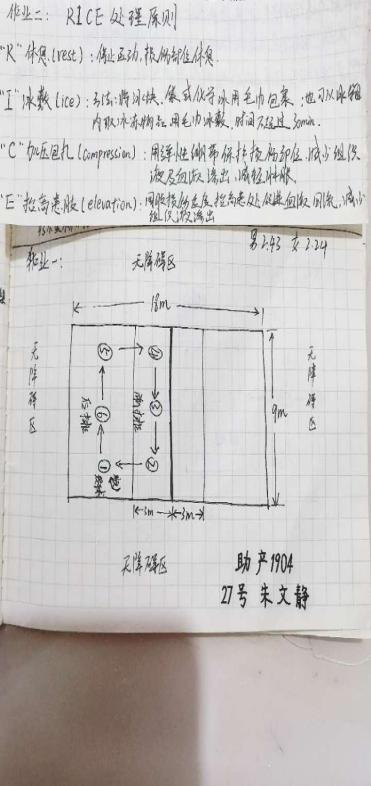 作业二: RICE处理原则
"R"休息(rest): 停止运动,损伤部位休息.
"I"冰敷(ice): 方法:将冰块、用毛巾包裹,也可以冰箱
内取冰冻物品用毛巾冰敷,时间不超过30min.
"C"加压包扎(compression): 用弹性绷带保护损伤部位,减少组织
液及血液渗出,减轻肿胀
"E"抬高患肢(elevation): 抬高患处促进血液回流,减小
组织液渗出
男2.43 女2.24
作业一:
无障碍区
18m
无障碍区
⑤ ④
⑥ ③
① ②
后排
前排
9m
无障碍区
3m 3m
无障碍区
助产1904
27号 朱文静